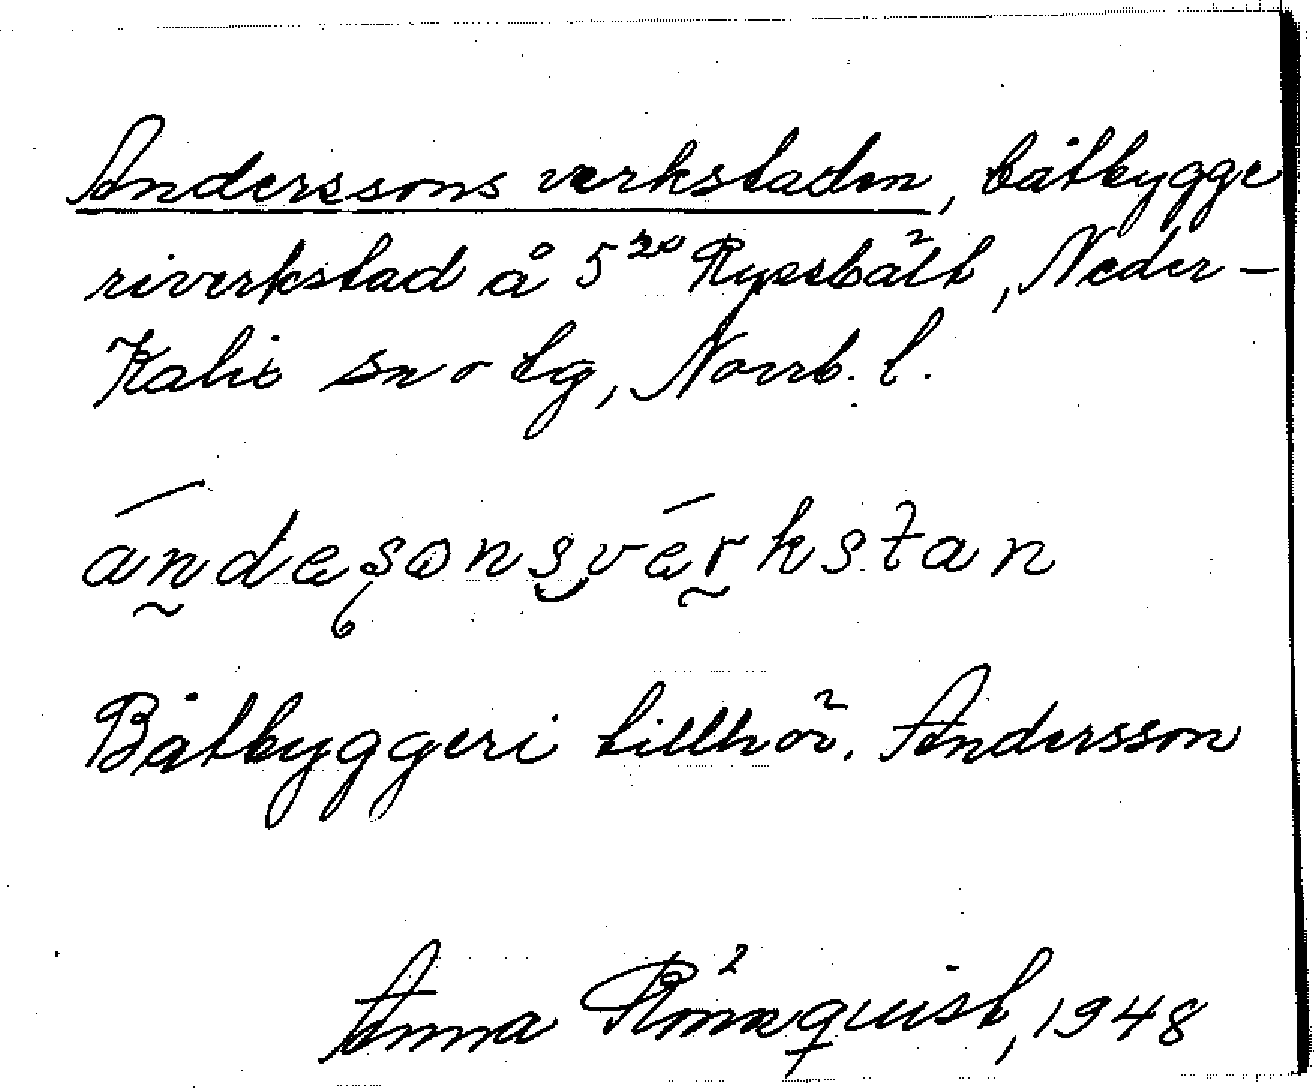 Anderssons verkstaden, båtbygge
riverkstad å 5²⁰ Ryssbält, Neder-
Kalix sn o tg, Norrb. l.
ándesonsvérkstan
Båtbyggeri tillhör. Andersson
Anna Rönnquist, 1948